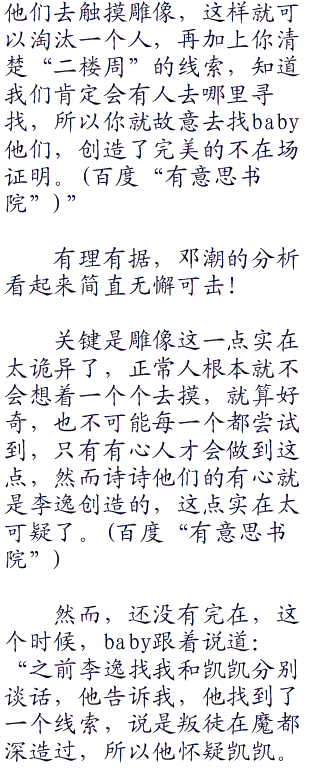 他们去触摸雕像，这样就可
以淘汰一个人，再加上你清
楚“二楼周”的线索，知道
我们肯定会有人去哪里寻
找，所以你就故意去找baby
他们，创造了完美的不在场
证明。(百度“有意思书
院”)”
有理有据，邓潮的分析
看起来简直无懈可击！
关键是雕像这一点实在
太诡异了，正常人根本就不
会想着一个个去摸，就算好
奇，也不可能每一个都尝试
到，只有有心人才会做到这
点，然而诗诗他们的有心就
是李逸创造的，这点实在太
可疑了。(百度“有意思书
院”)
然而，还没有完在，这
个时候，baby跟着说道：
“之前李逸找我和凯凯分别
谈话，他告诉我，他找到了
一个线索，说是叛徒在魔都
深造过，所以他怀疑凯凯。